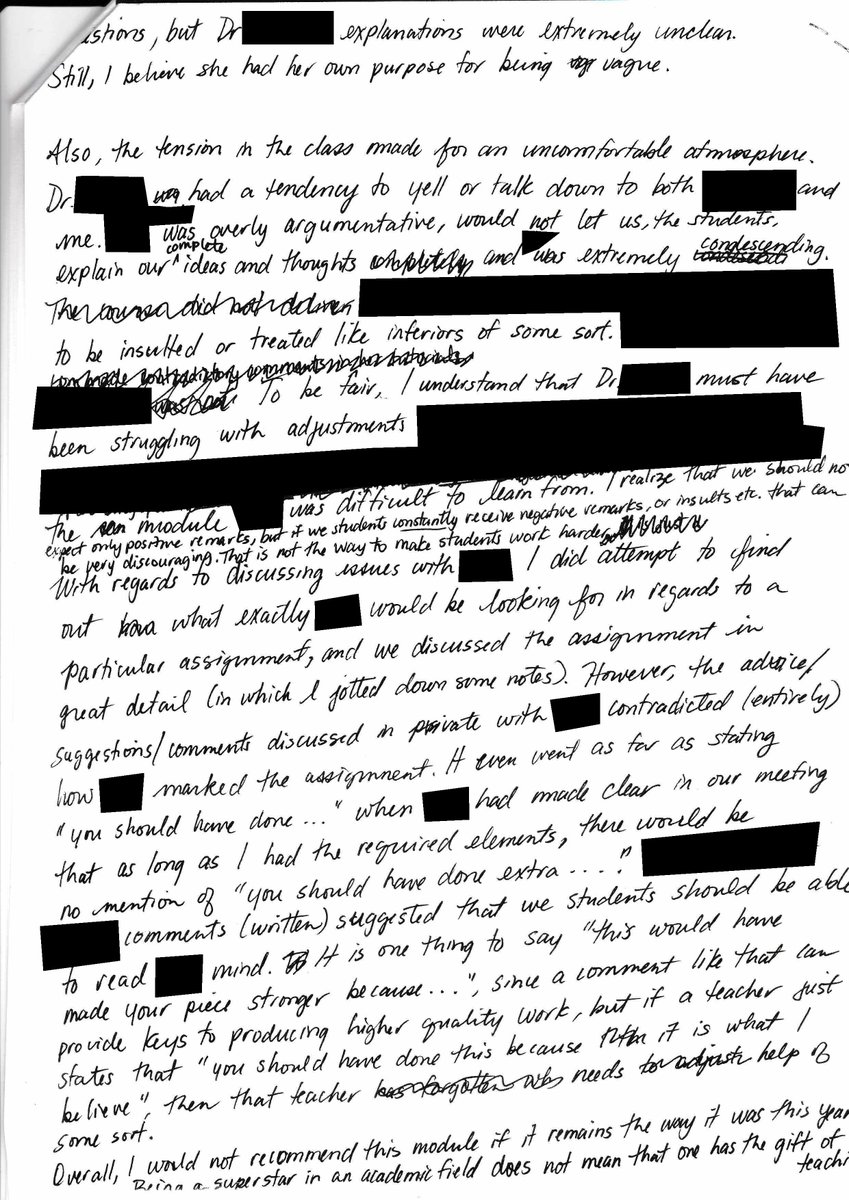 stions, but Dr explanations were extremely unclear.
Still, I believe she had her own purpose for being vague.
Also, the tension in the class made for an uncomfortable atmosphere.
Dr. had a tendency to yell or talk down to both and
me. was overly argumentative, would not let us, the students,
explain our complete ideas and thoughts and was extremely condescending.
The course did not
to be insulted or treated like inferiors of some sort.
To be fair, I understand that Dr. must have
been struggling with adjustments
the module was difficult to learn from. I realize that we should not
expect only positive remarks, but if we students constantly receive negative remarks, or insults etc. that can
be very discouraging. That is not the way to make students work harder
With regards to discussing issues with I did attempt to find
out what exactly would be looking for in regards to a
particular assignment, and we discussed the assignment in
great detail (in which I jotted down some notes). However, the advice/
suggestions/comments discussed in private with contradicted (entirely)
how marked the assignment. It even went as far as stating
"you should have done..." when had made clear in our meeting
that as long as I had the required elements, there would be
no mention of "you should have done extra ...."
comments (written) suggested that we students should be able
to read mind. It is one thing to say "this would have
made your piece stronger because...", since a comment like that can
provide keys to producing higher quality work, but if a teacher just
states that "you should have done this because it is what I
believe", then that teacher has forgotten needs to adjust help of
some sort.
Overall, I would not recommend this module if it remains the way it was this year
Being a superstar in an academic field does not mean that one has the gift of
teachi